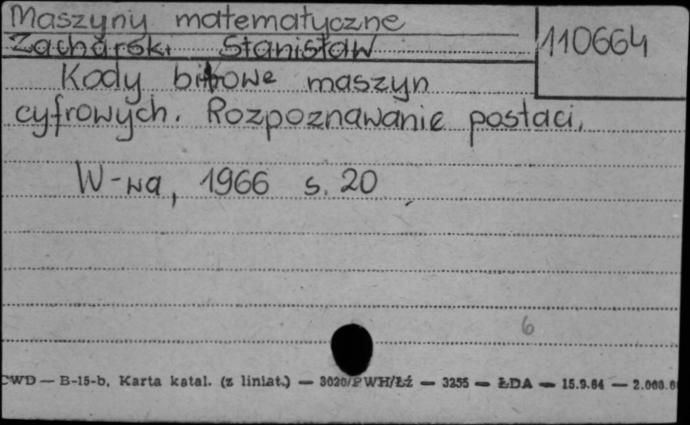 Maszyny matematyczne
Zacharski Stanisław
110664
Kody bitowe maszyn
cyfrowych. Rozpoznawanie postaci.
W-wa, 1966 s. 20
6
CWD — B-15-b, Karta katal. (z liniat.) — 3020/PWH/Łź — 3255 — ŁDA — 15.9.64 — 2.000.0